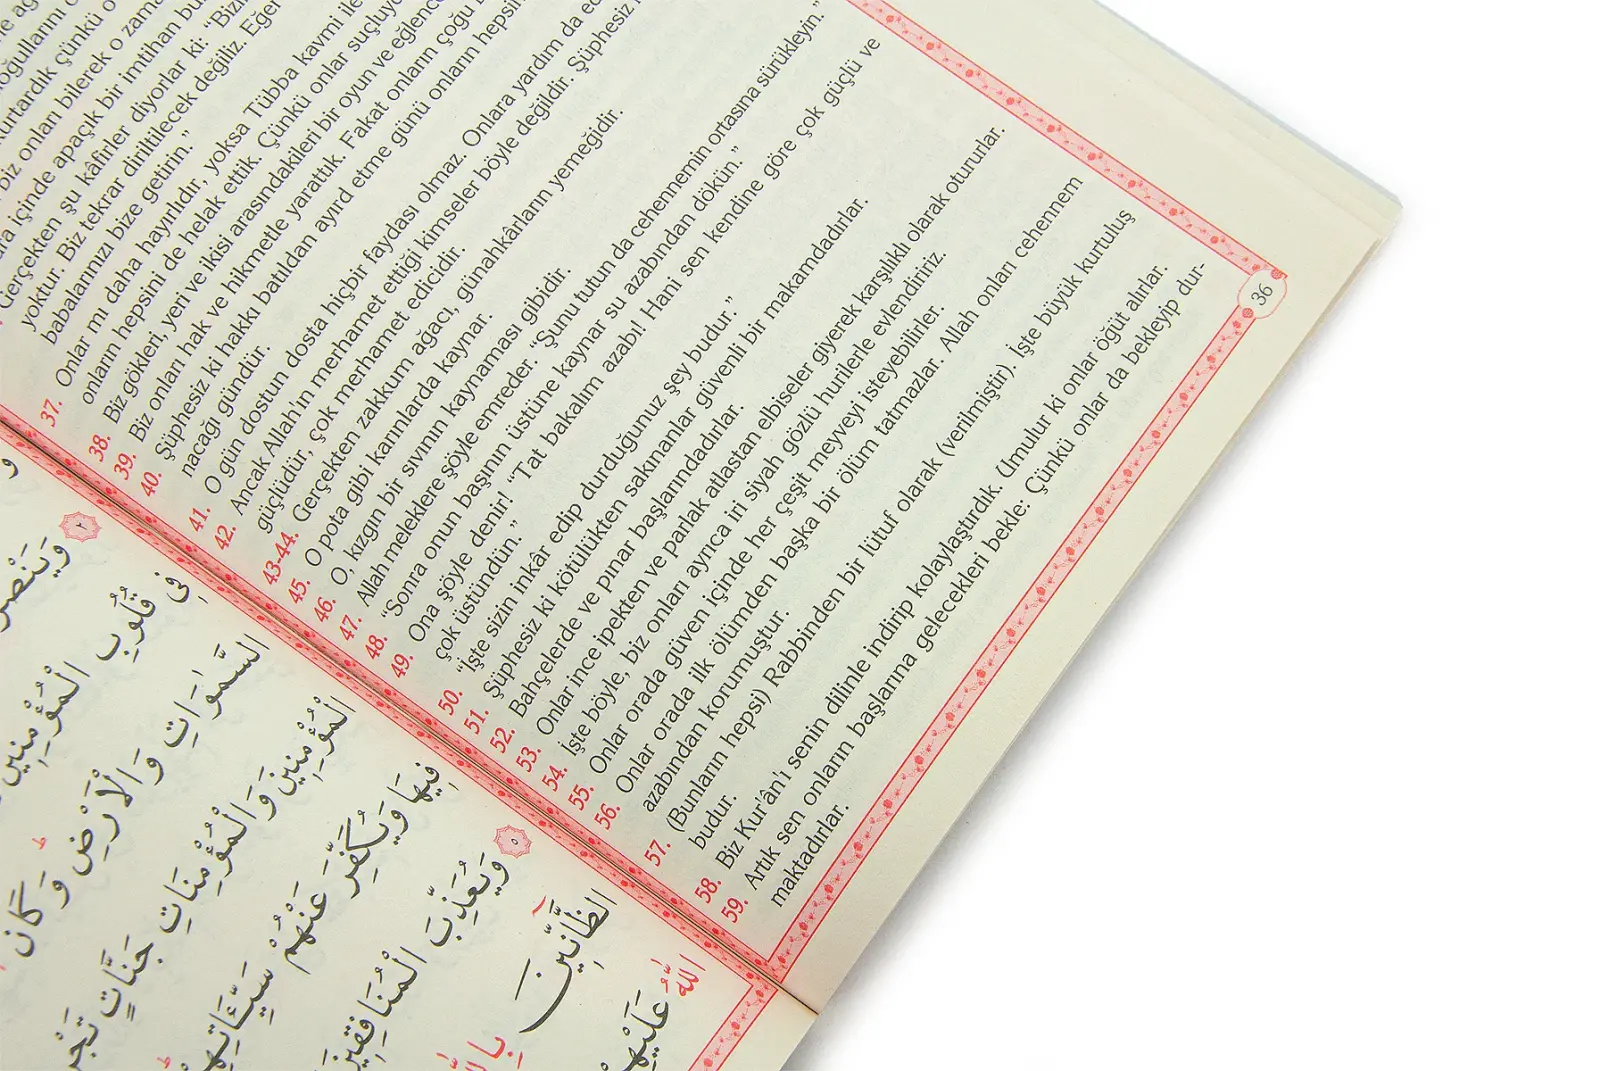 oğullarını
kurtardık çünkü o
biz onları bilerek o zama
içinde apaçık bir imtihan bu
Gerçekten şu kâfirler diyorlar ki: “Bizi
yoktur. Biz tekrar diriltilecek değiliz. Eğer
babalarımızı bize getirin.”
37. Onlar mı daha hayırlıdır, yoksa Tübba kavmi ile
onların hepsini de helak ettik. Çünkü onlar suçluy
38. Biz gökleri, yeri ve ikisi arasındakileri bir oyun ve eğlence
39. Biz onları hak ve hikmetle yarattık. Fakat onların çoğu
40. Şüphesiz ki hakkı batıldan ayırd etme günü onların hepsin
nacağı gündür.
41. O gün dostun dosta hiçbir faydası olmaz. Onlara yardım da ed
42. Ancak Allah'ın merhamet ettiği kimseler böyle değildir. Şüphesiz
güçlüdür, çok merhamet edicidir.
43-44. Gerçekten zakkum ağacı, günahkânların yemeğidir.
45. O pota gibi karınlarda kaynar.
46. O, kızgın bir sıvının kaynaması gibidir.
47. Allah meleklere şöyle emreder: “Şunu tutun da cehennemin ortasına sürükleyin.”
48. “Sonra onun başının üstüne kaynar su azabından dökün.”
49. Ona şöyle denir! “Tat bakalım azabı! Hani sen kendine göre çok güçlü ve
çok üstündün.”
50. “İşte sizin inkâr edip durduğunuz şey budur.”
51. Şüphesiz ki kötülükten sakınanlar güvenli bir makamdadırlar.
52. Bahçelerde ve pınar başlarındadırlar.
53. Onlar ince ipekten ve parlak atlastan elbiseler giyerek karşılıklı olarak otururlar.
54. İşte böyle, biz onları ayrıca iri siyah gözlü hurilerle evlendiririz.
55. Onlar orada güven içinde her çeşit meyveyi isteyebilirler.
56. Onlar orada ilk ölümden başka bir ölüm tatmazlar. Allah onları cehennem
azabından korumuştur.
57. (Bunların hepsi) Rabbinden bir lütuf olarak (verilmiştir). İşte büyük kurtuluş
budur.
58. Biz Kur'ân'ı senin dilinle indirip kolaylaştırdık. Umulur ki onlar öğüt alırlar.
59. Artık sen onların başlarına gelecekleri bekle. Çünkü onlar da bekleyip dur-
maktadırlar.
36
وَيَنْصُرَ
فِى قُلُوبِ الْمُؤْمِنِينَ
السَّمٰوَاتِ وَالْاَرْضِ وَكَانَ
الْمُؤْمِنِينَ وَالْمُؤْمِنَاتِ جَنَّاتٍ تَجْرِ
فِيهَا وَيُكَفِّرَ عَنْهُمْ سَيِّـَٔاتِهِمْ
٥ وَيُعَذِّبَ الْمُنَافِقِينَ
الظَّٓانِّينَ بِاللّٰهِ
اللّٰهُ عَلَيْهِمْ